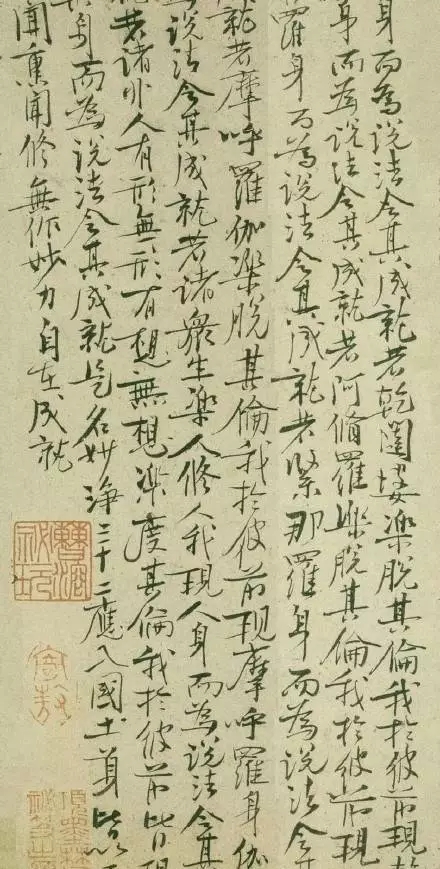 身而為說法令其成就若乾闥婆樂脫其倫我於彼前現乾
身而為說法令其成就若阿脩羅樂脫其倫我於彼前現
羅身而為說法令其成就若緊那羅身而為說法令其
就若摩呼羅伽樂脫其倫我於彼前現摩呼羅身伽
為說法令其成就若諸眾生樂人修人我現人身而為說法令其
若諸非人有形無形有想無想樂度其倫我於彼前皆現
身而為說法令其成就是名妙淨三十二應入國土身皆以
聞熏聞修無作妙力自在成就